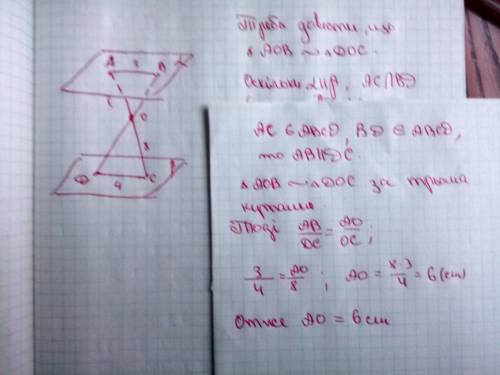 Треба довести, що
△AOB ~ △DOC.
Оскільки α||β, AC∩BD
AC ∈ ABCD, BD ∈ ABCD,
то AB||DC.
△AOB ~ △DOC за трьома
кутами.
Тоді AB/DC = AO/OC;
3/4 = AO/8; AO = 8·3/4 = 6 (см)
Отже AO = 6 см
A 3 B
O
8
D 4 C